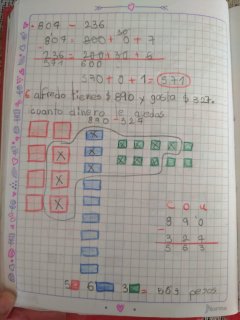 807 - 236
807 = 800 + 0 + 7
236 = 200 + 30 + 6
571 600
570 + 0 + 1 = 571
alfredo tienes $ 890 y gasta $ 327.
cuanto dinero le quedas
890 - 327
C D U
890
- 327
563
5 6 3 = 563 pesos
Norma